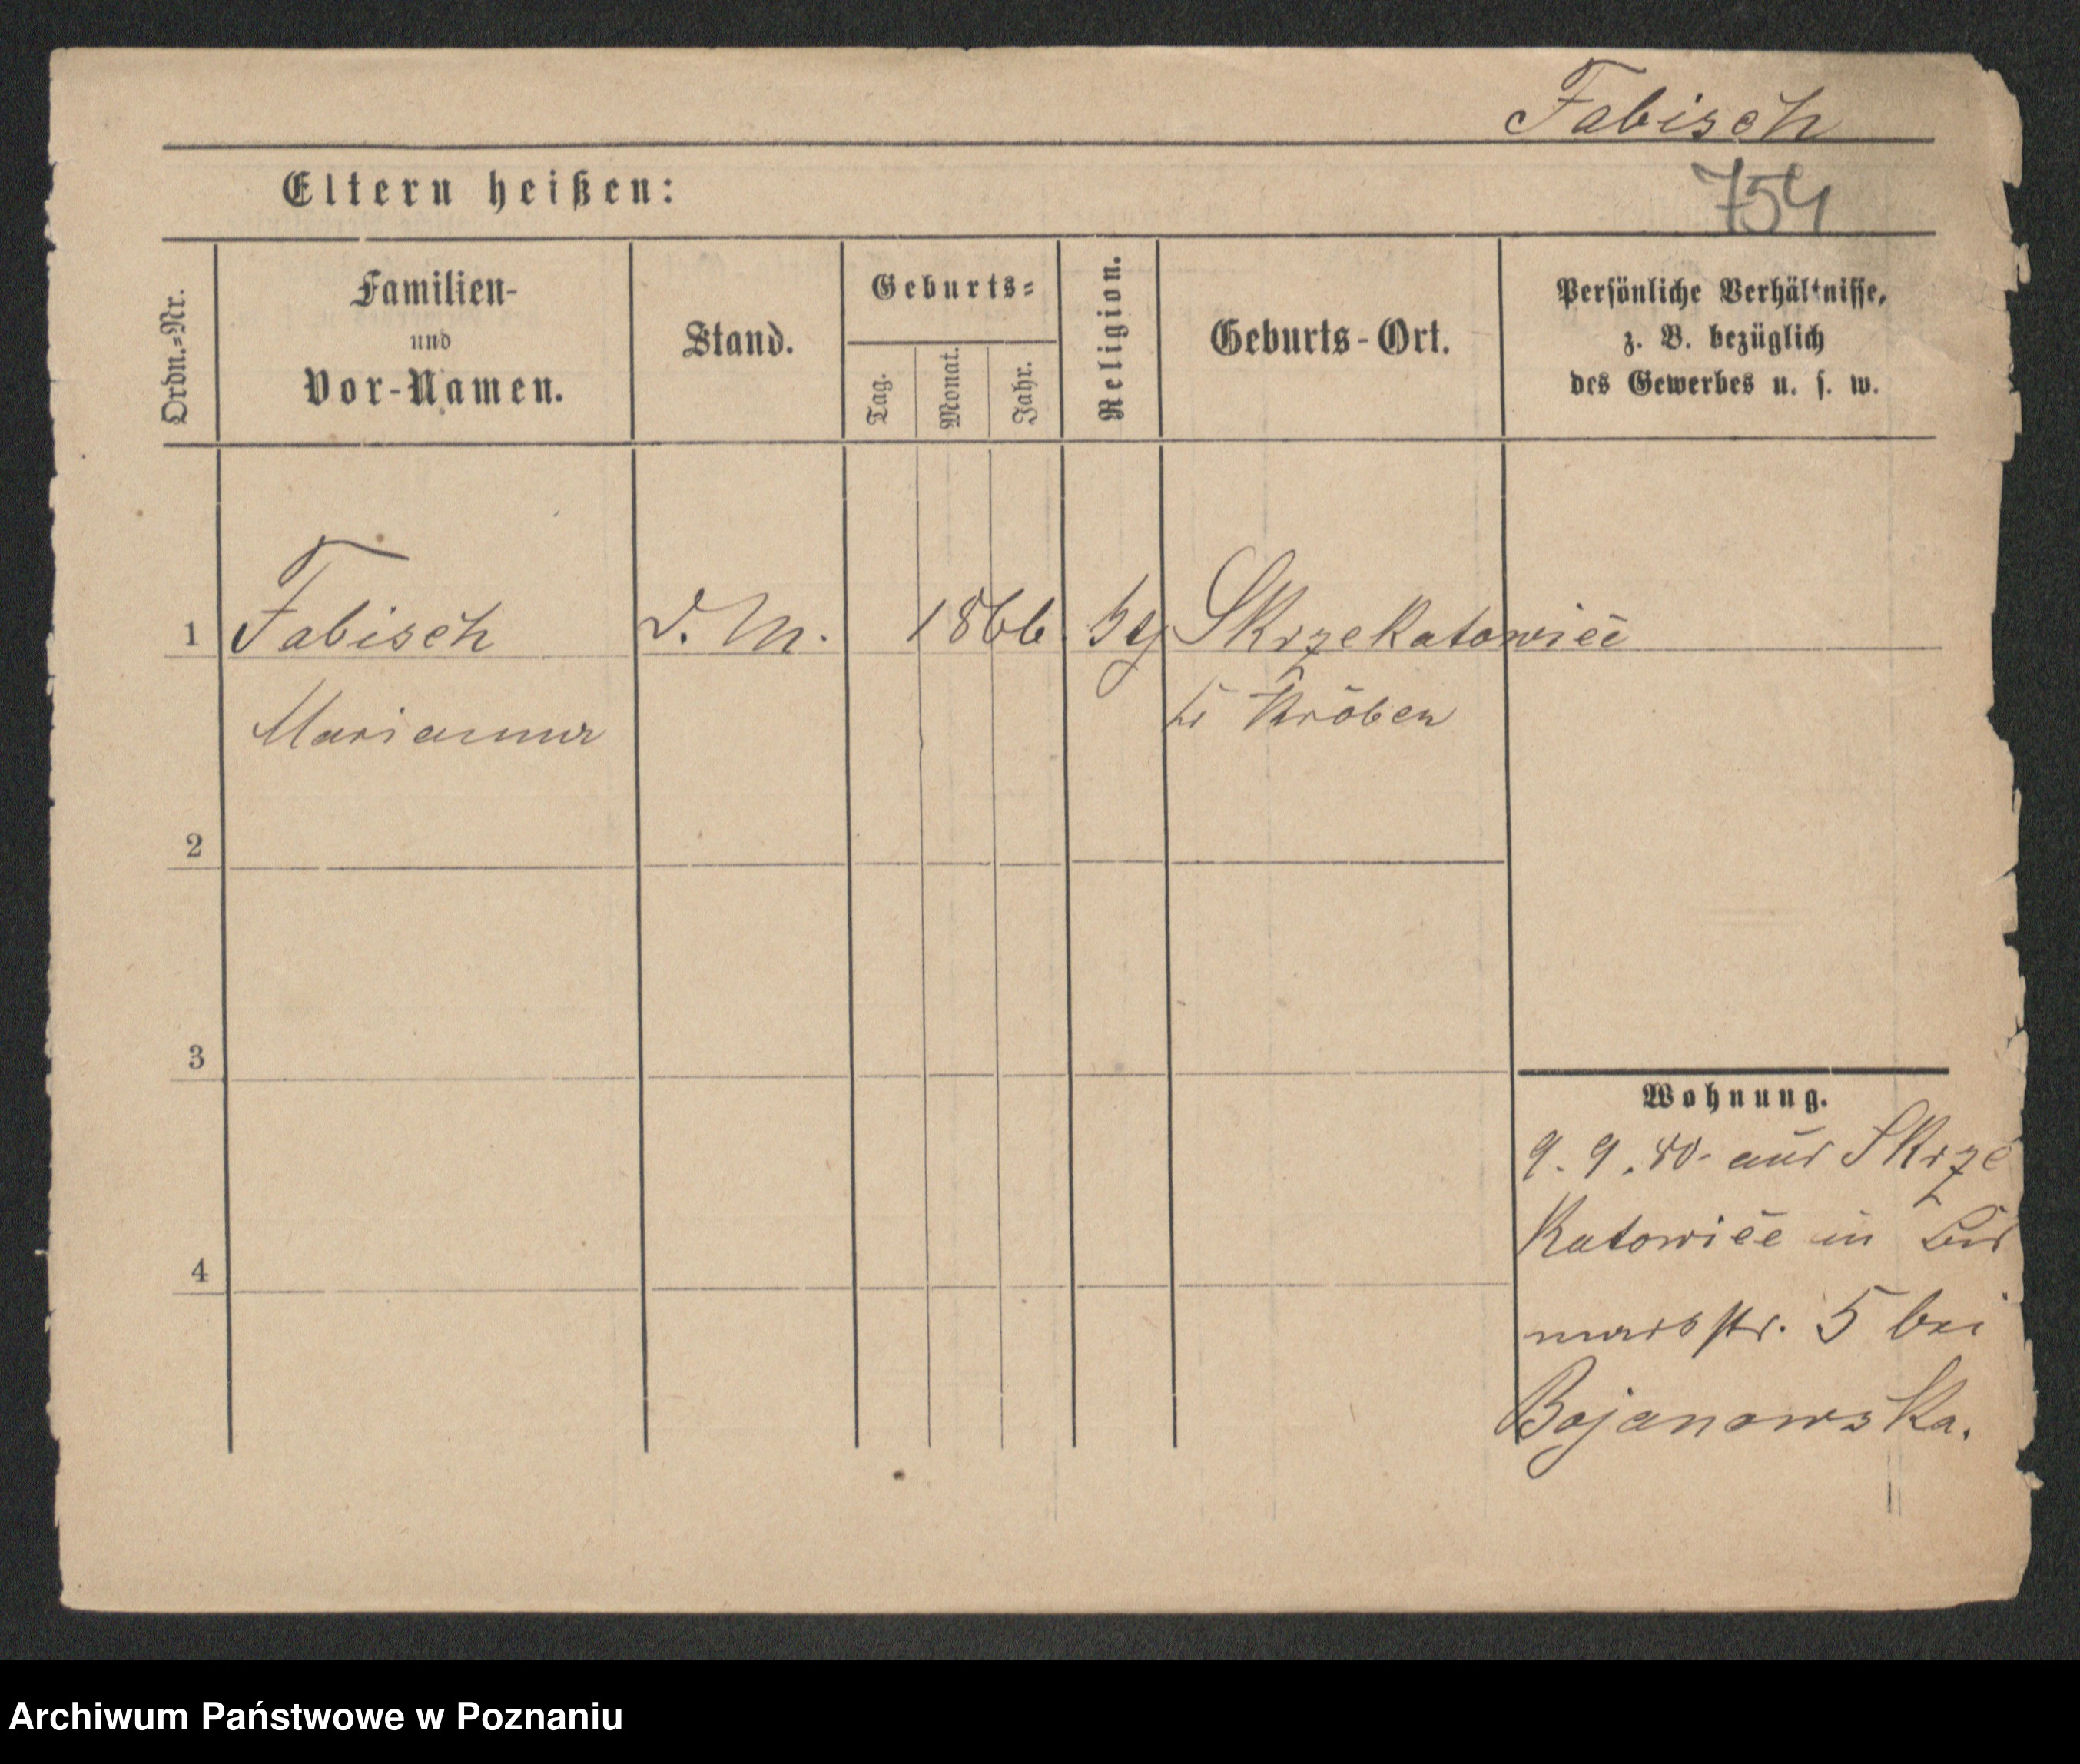 Fabisch
Eltern heißen:
754
Ordn.=Nr.
Familien-
und
Vor-Namen.
Stand.
Geburts=
Tag.
Monat.
Jahr.
Religion.
Geburts-Ort.
Persönliche Verhältnisse,
z. B. bezüglich
des Gewerbes u. s. w.
1 Fabisch d. M. 1866. Skrzekatowicc
Marianna Kröben
2
3
4
Wohnung.
9. 9. 80. aus Skrze
katowicc in
str. 5 bei
Bojanowska.
Archiwum Państwowe w Poznaniu